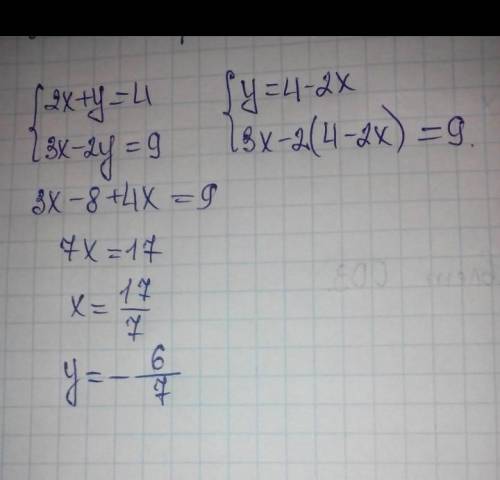 {2x+y=4
3x-2y=9
{y=4-2x
3x-2(4-2x)=9.
3x-8+4x=9
7x=17
x=17/7
y=-6/7